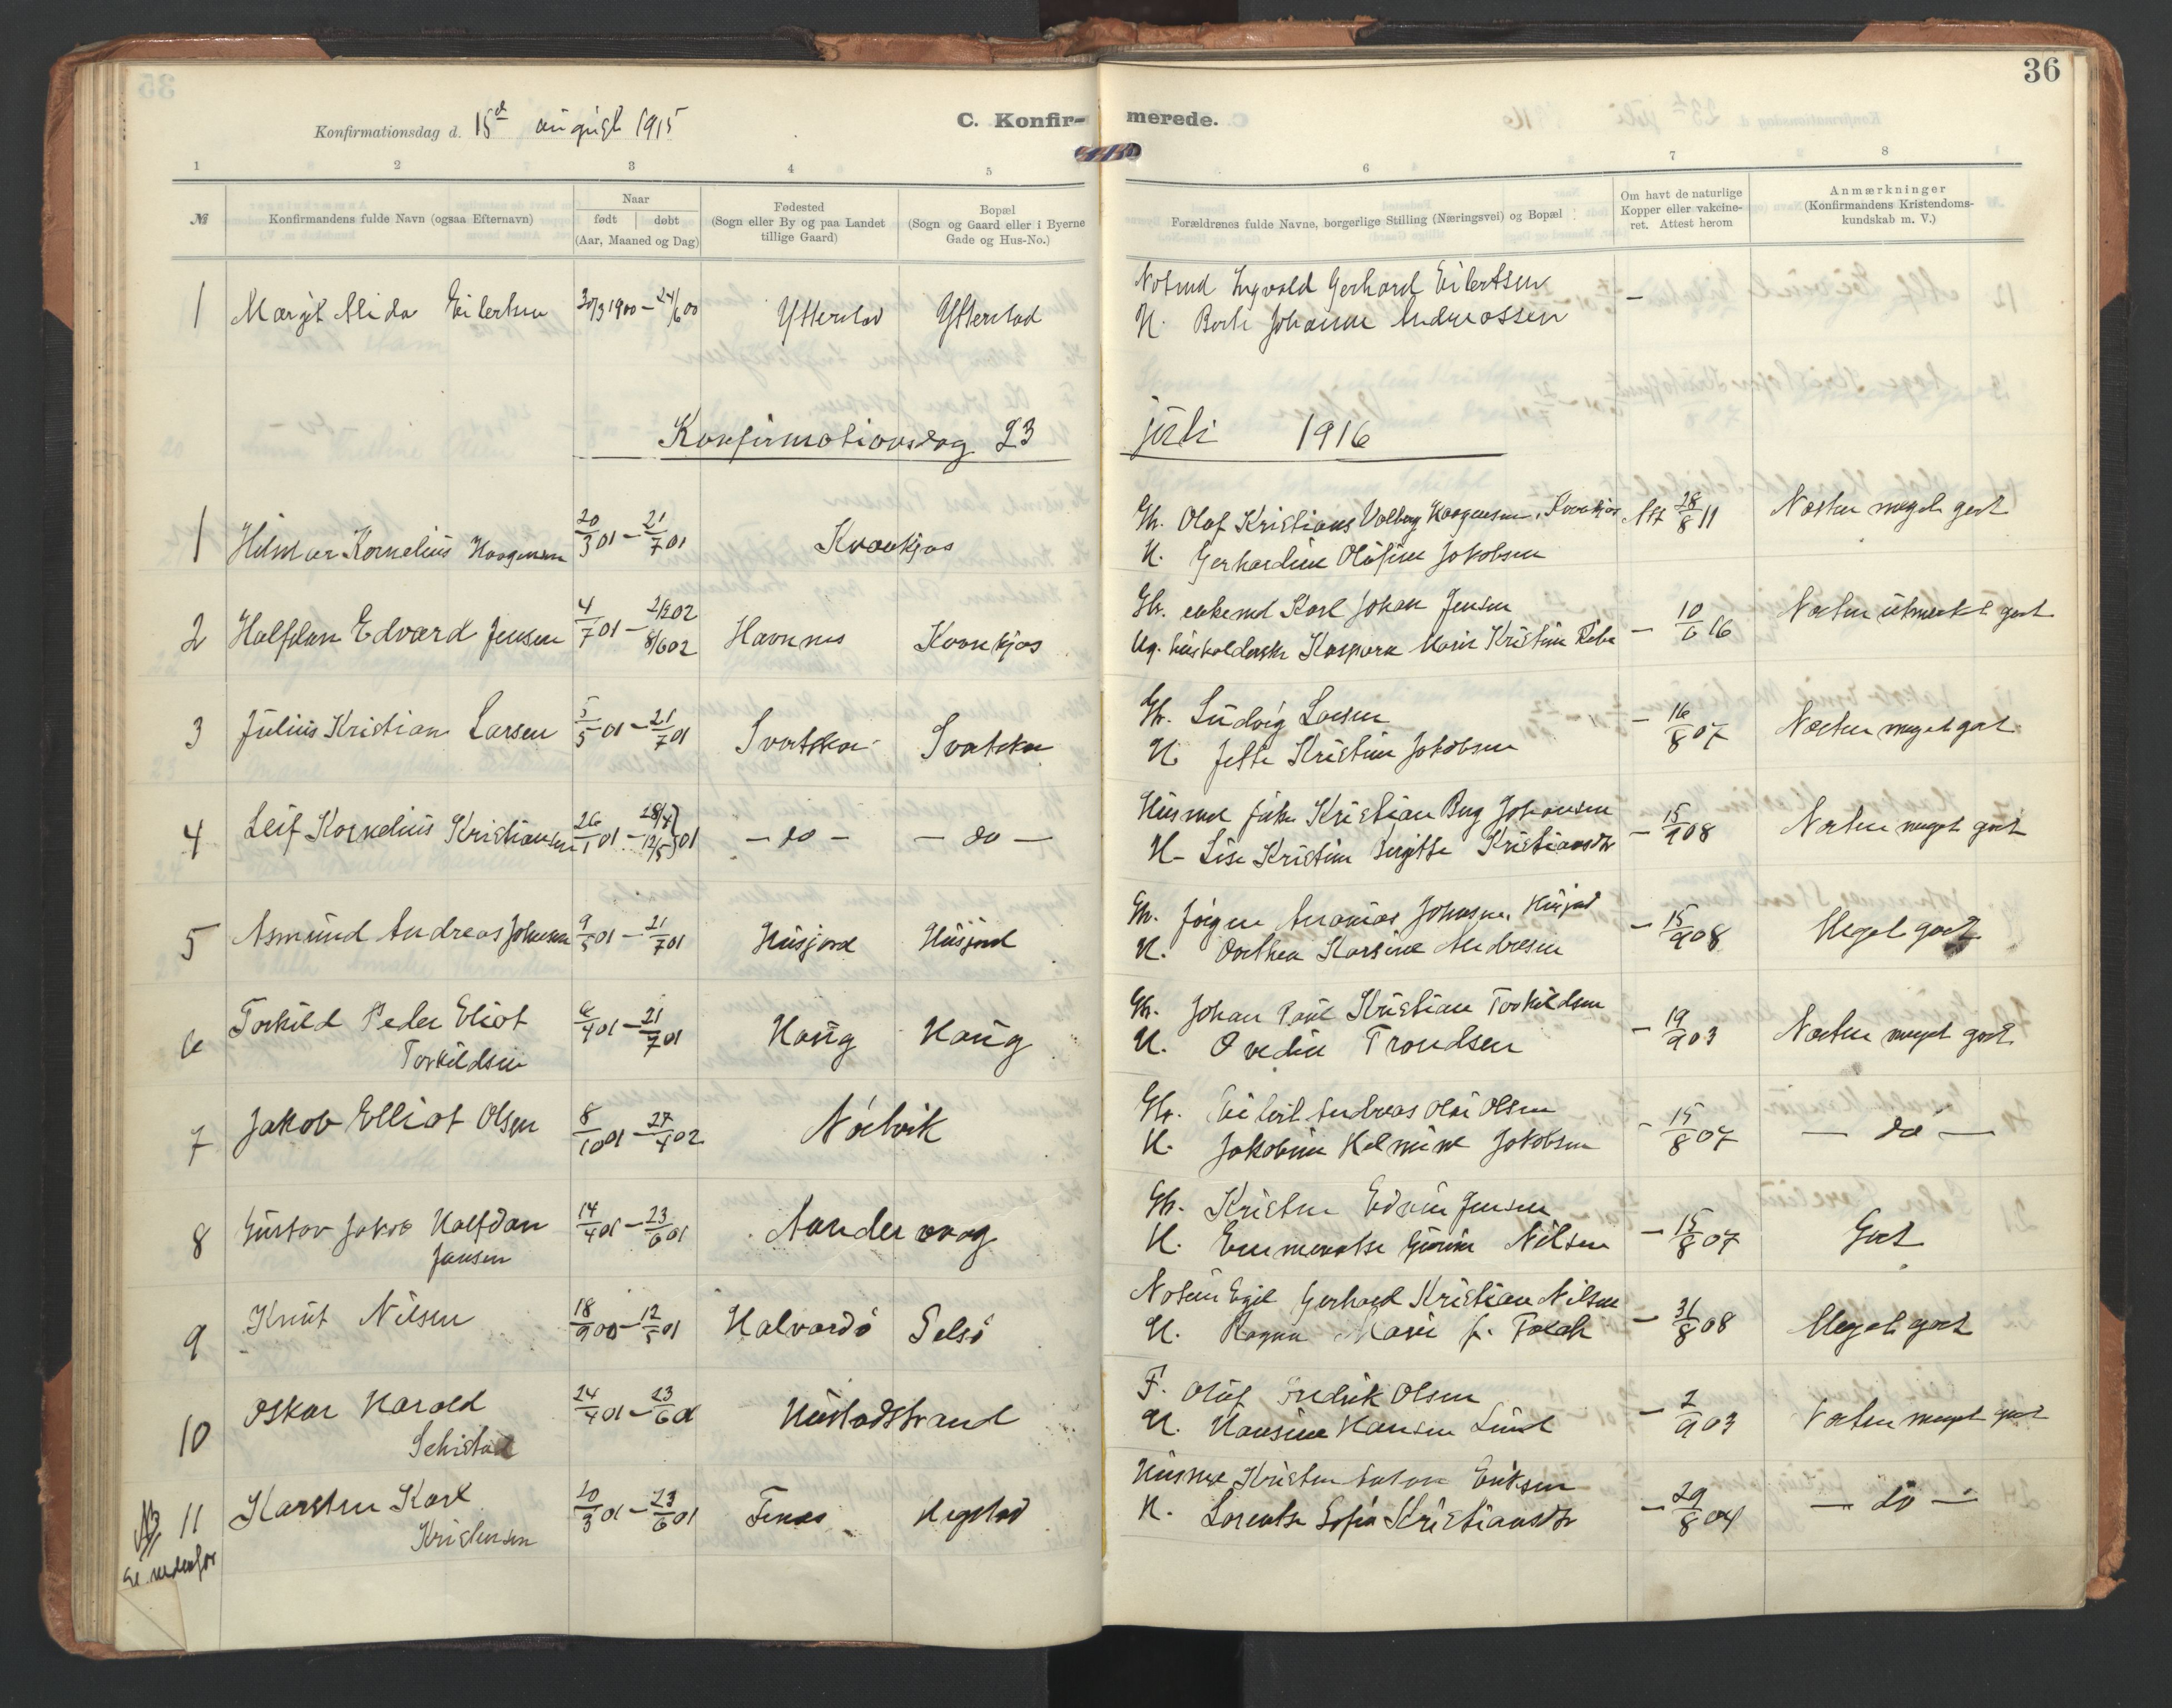 36
Konfirmationsdag d. 15d august 1915
C. Konfir- merede.
1 2 3 4 5 6 7 8
№ Konfirmandens fulde Navn (ogsaa Efternavn) Naar født døbt (Aar, Maaned og Dag) Fødested (Sogn eller By og paa Landet tillige Gaard) Bopæl (Sogn og Gaard eller i Byerne Gade og Hus-No.) Forældrenes fulde Navne, borgerlige Stilling (Næringsvei) og Bopæl Om havt de naturlige Kopper eller vakcineret. Attest herom Anmærkninger (Konfirmandens Kristendomskundskab m. V.)
1 Margit Alida Eilertsen 30/3 1900 - 24/6 00 Ytterstad Ytterstad Notmd Ingvald Gerhard Eilertsen -
H. Berte Johanna Andreassen
Konfirmationsdag 23 juli 1916
1 Hilmar Kornelius Haagensen 20/3 01 - 21/7 01 Kvankjos Gb. Olaf Kristians Valberg Haagensen, Att 28/8 11 Næsten meget godt
H. Gerhardine Olufine Jakobsen
2 Halfdan Edvard Jensen 4/7 01 - 2/2 02 8/6 02 Havnnes Kvankjos Gb. enkemd Karl Johan Jensen - 10/6 16 Næsten utmerket godt
Ug. husholderske Kaspara Marie Kristine
3 Julius Kristian Larsen 5/5 01 - 21/7 01 Svartskar Svartskar Gb. Ludvig Larsen - 16/8 07 Næsten meget godt
H. Jette Kristine Jakobsen
4 Leif Kornelius Kristiansen 26/1 01 - 28/4 12/5 01 - do - - do - Husmd Kristian Berg Johansen - 15/9 08 Næsten meget godt
H - Lise Kristine Birgitte Kristiansdtr
5 Asmund Andreas Johnsen 9/5 01 - 21/7 01 Husjord Husjord Gb. Jørgen Ananias Johnsen, Husjord - 15/9 08 Meget godt
H. Dorthea Karsine Andresen
6 Torkild Peder Eliot Torkildsen 6/4 01 - 21/7 01 Haug Haug Gb. Johan Paul Kristian Torkildsen - 19/9 03 Næsten meget godt
H. Ovedia Trondsen
7 Jakob Elliot Olsen 8/10 01 - 27/4 02 Norvik Gb. Eilert Andreas Olai Olsen - 15/8 07 - do -
H. Jakobine Helmine Jakobsen
8 Gustav Jakob Halfdan Jensen 14/4 01 - 23/6 01 Sandervaag Gb. Kristen Edvin Jensen - 15/8 07 Godt
H. Emmerentse Nilsen
9 Knut Nilsen 18/9 00 - 12/5 01 Halvardø Selsø Gerhard Kristian Nilsen - 31/8 08 Meget godt
H. Ragna Marie f. Falch
10 Oskar Harald Schistad 24/4 01 - 23/6 01 Hustadstrand F. Oluf Fredrik Olsen - 2/9 03 Næsten meget godt
H. Hansine Hansen Lund
11 Karsten Karl Kristensen 20/3 01 - 23/6 01 Finnes Hegstad Husmd Kristen Anton Eriksen - 29/8 04 - do -
H. Lorentse Sofia Kristiansdtr
NB se nedenfor